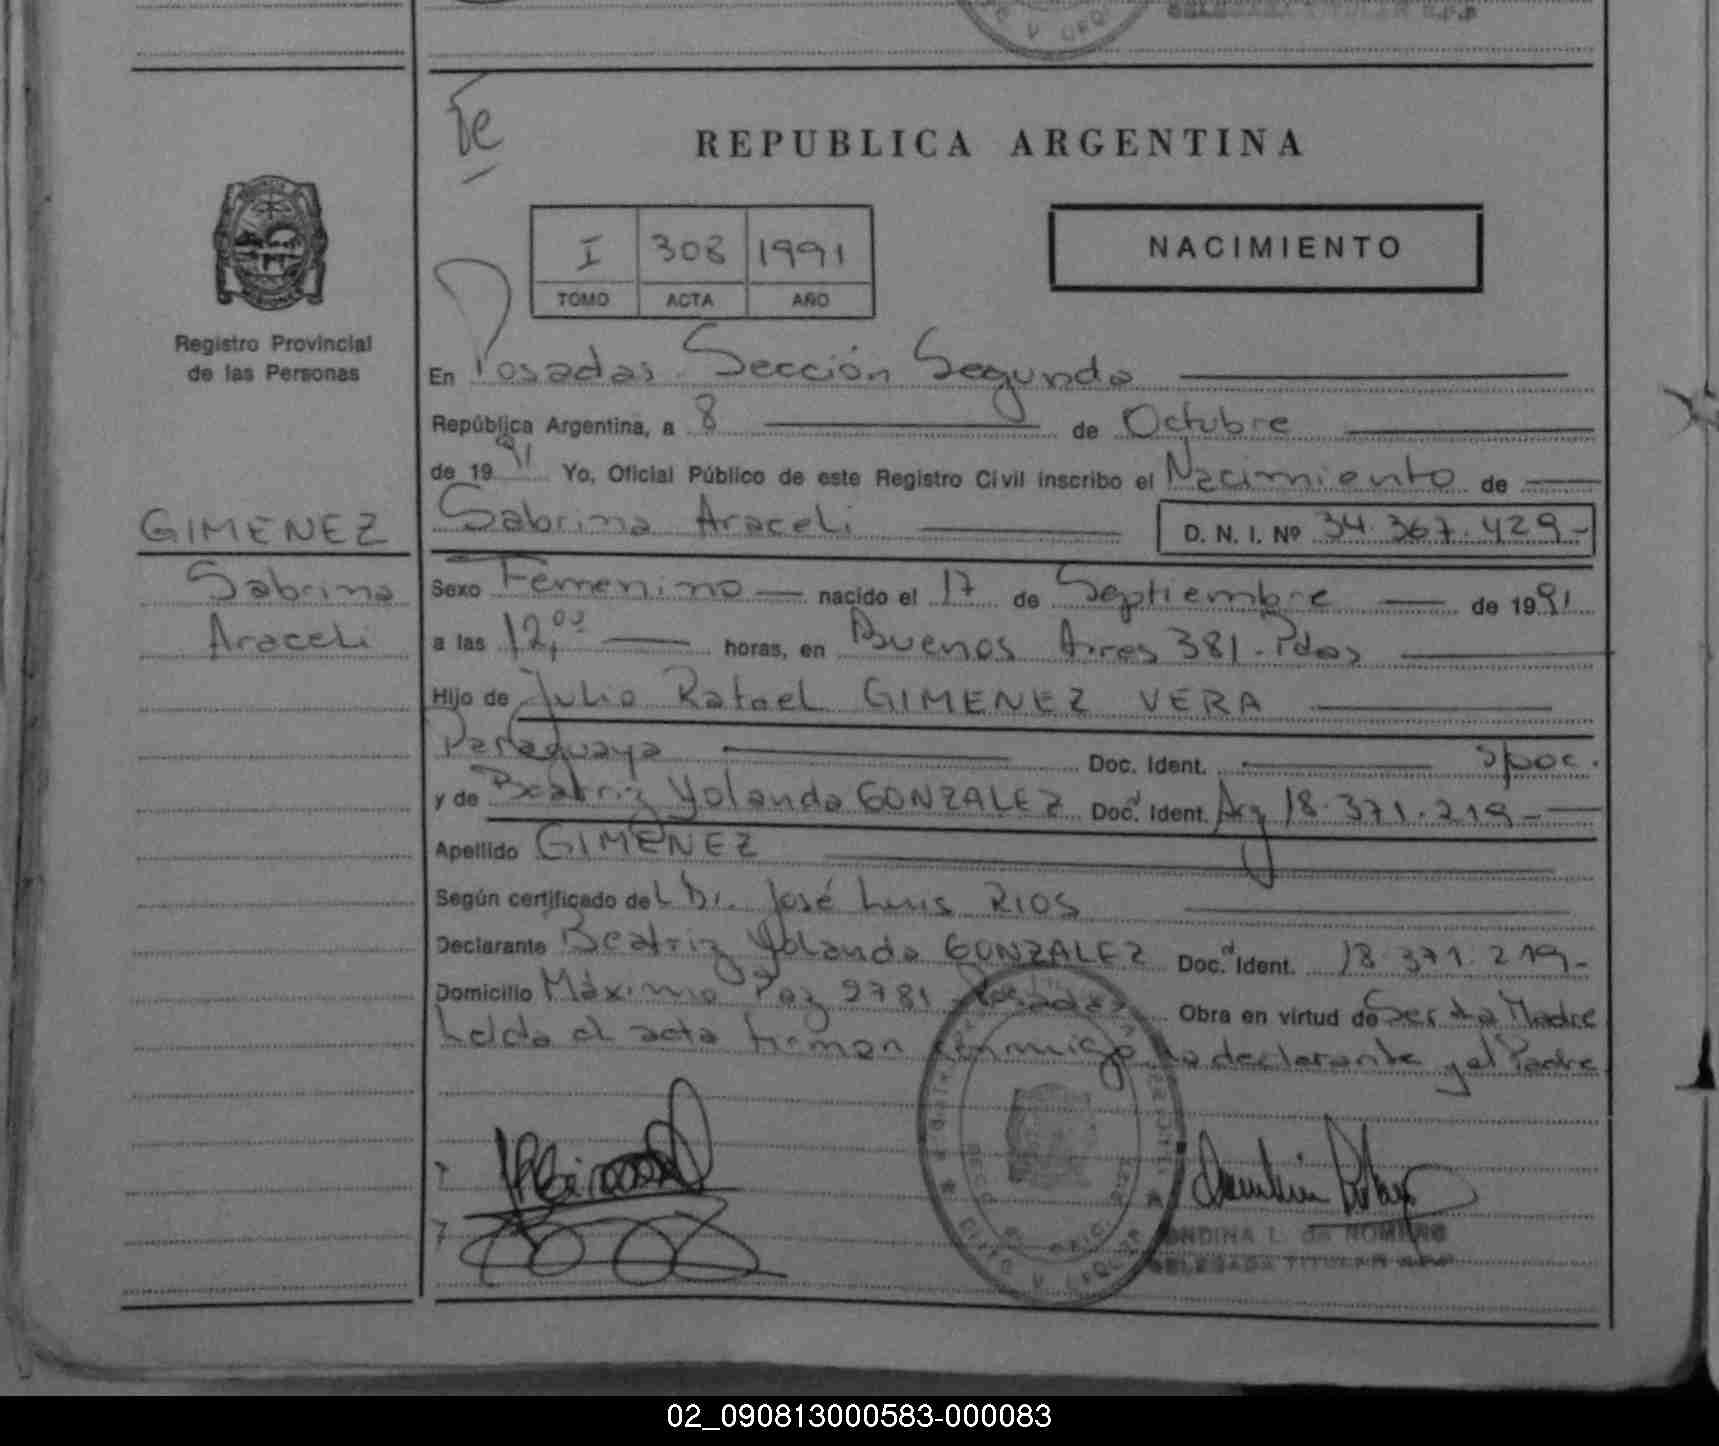 DELEGADA TITULAR R.P.P
fe
REPUBLICA ARGENTINA
I 308 1991
TOMO ACTA AÑO
NACIMIENTO
Registro Provincial
de las Personas
En Posadas Sección Segunda
República Argentina, a 8 de Octubre
de 1991 Yo, Oficial Público de este Registro Civil inscribo el Nacimiento de
GIMENEZ
Sabrina
Araceli
Sabrina Araceli D. N. I. Nº 34.367.429-
Sexo Femenino nacido el 17 de Septiembre de 1991
a las 12,00 horas, en Buenos Aires 381-Pdas
Hijo de Julio Rafael GIMENEZ VERA
Paraguaya Doc. Ident. spoc.
y de Beatriz Yolanda GONZALEZ Doc. Ident. Arg 18.371.219-
Apellido GIMENEZ
Según certificado del Dr. José Luis RIOS
Declarante Beatriz Yolanda GONZALEZ Doc. Ident. 18.371.219-
Domicilio Máximo Paz 2781 Posadas Obra en virtud de Ser la Madre
Leída el acta firman conmigo la declarante y el Padre
ONDINA L. de ROMERO
DELEGADA TITULAR R.P.P
02_090813000583-000083